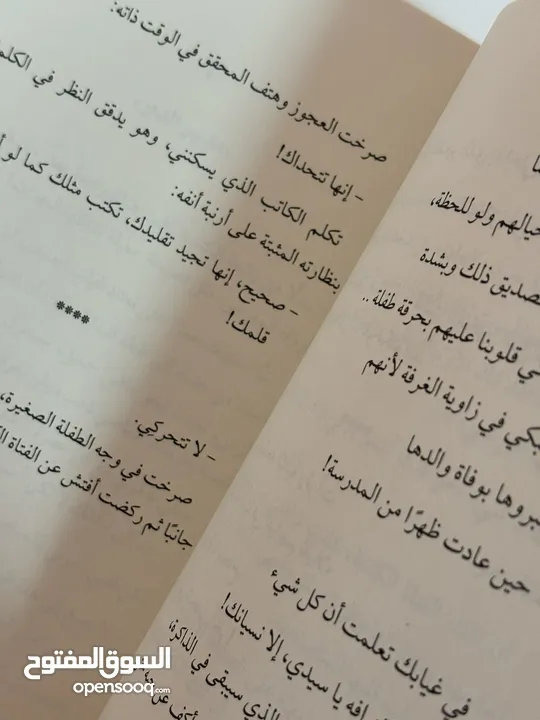 ما
حيالهم ولو للحظة،
صديق ذلك وبشدة
في قلوبنا عليهم بحرقة طفلة ..
بكي في زاوية الغرفة لأنهم
بروها بوفاة والدها
حين عادت ظهرًا من المدرسة!
في غيابك تعلمت أن كل شيء
افه يا سيدي، إلا نسيانك!
الذي سيبقى في الذاكرة،
صرخت العجوز وهتف المحقق في الوقت ذاته:
- إنها تتحداك!
تكلم الكاتب الذي يسكنني، وهو يدقق النظر في الكلم
بنظارته المثبتة على أرنبة أنفه:
- صحيح، إنها تجيد تقليدك، تكتب مثلك كما لو أ
قلمك!
****
- لا تتحركي.
صرخت في وجه الطفلة الصغيرة،
جانبًا ثم ركضت أفتش عن الفتاة ال
السوق المفتوح
opensooq.com